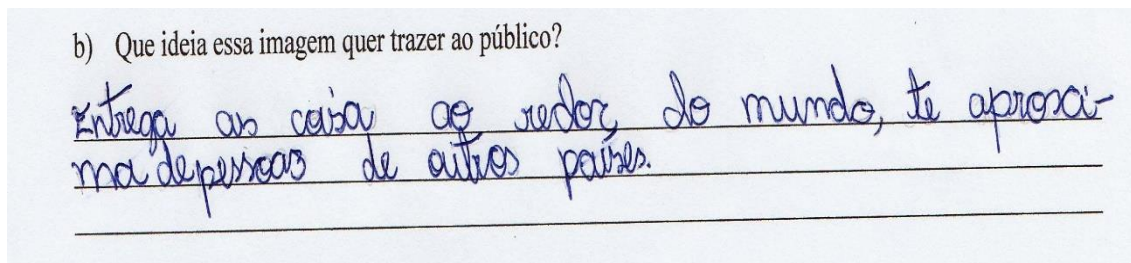 b) Que ideia essa imagem quer trazer ao público?
Entrega as coisa ao redor do mundo, te aproxi-
ma de pessoas de outros países.